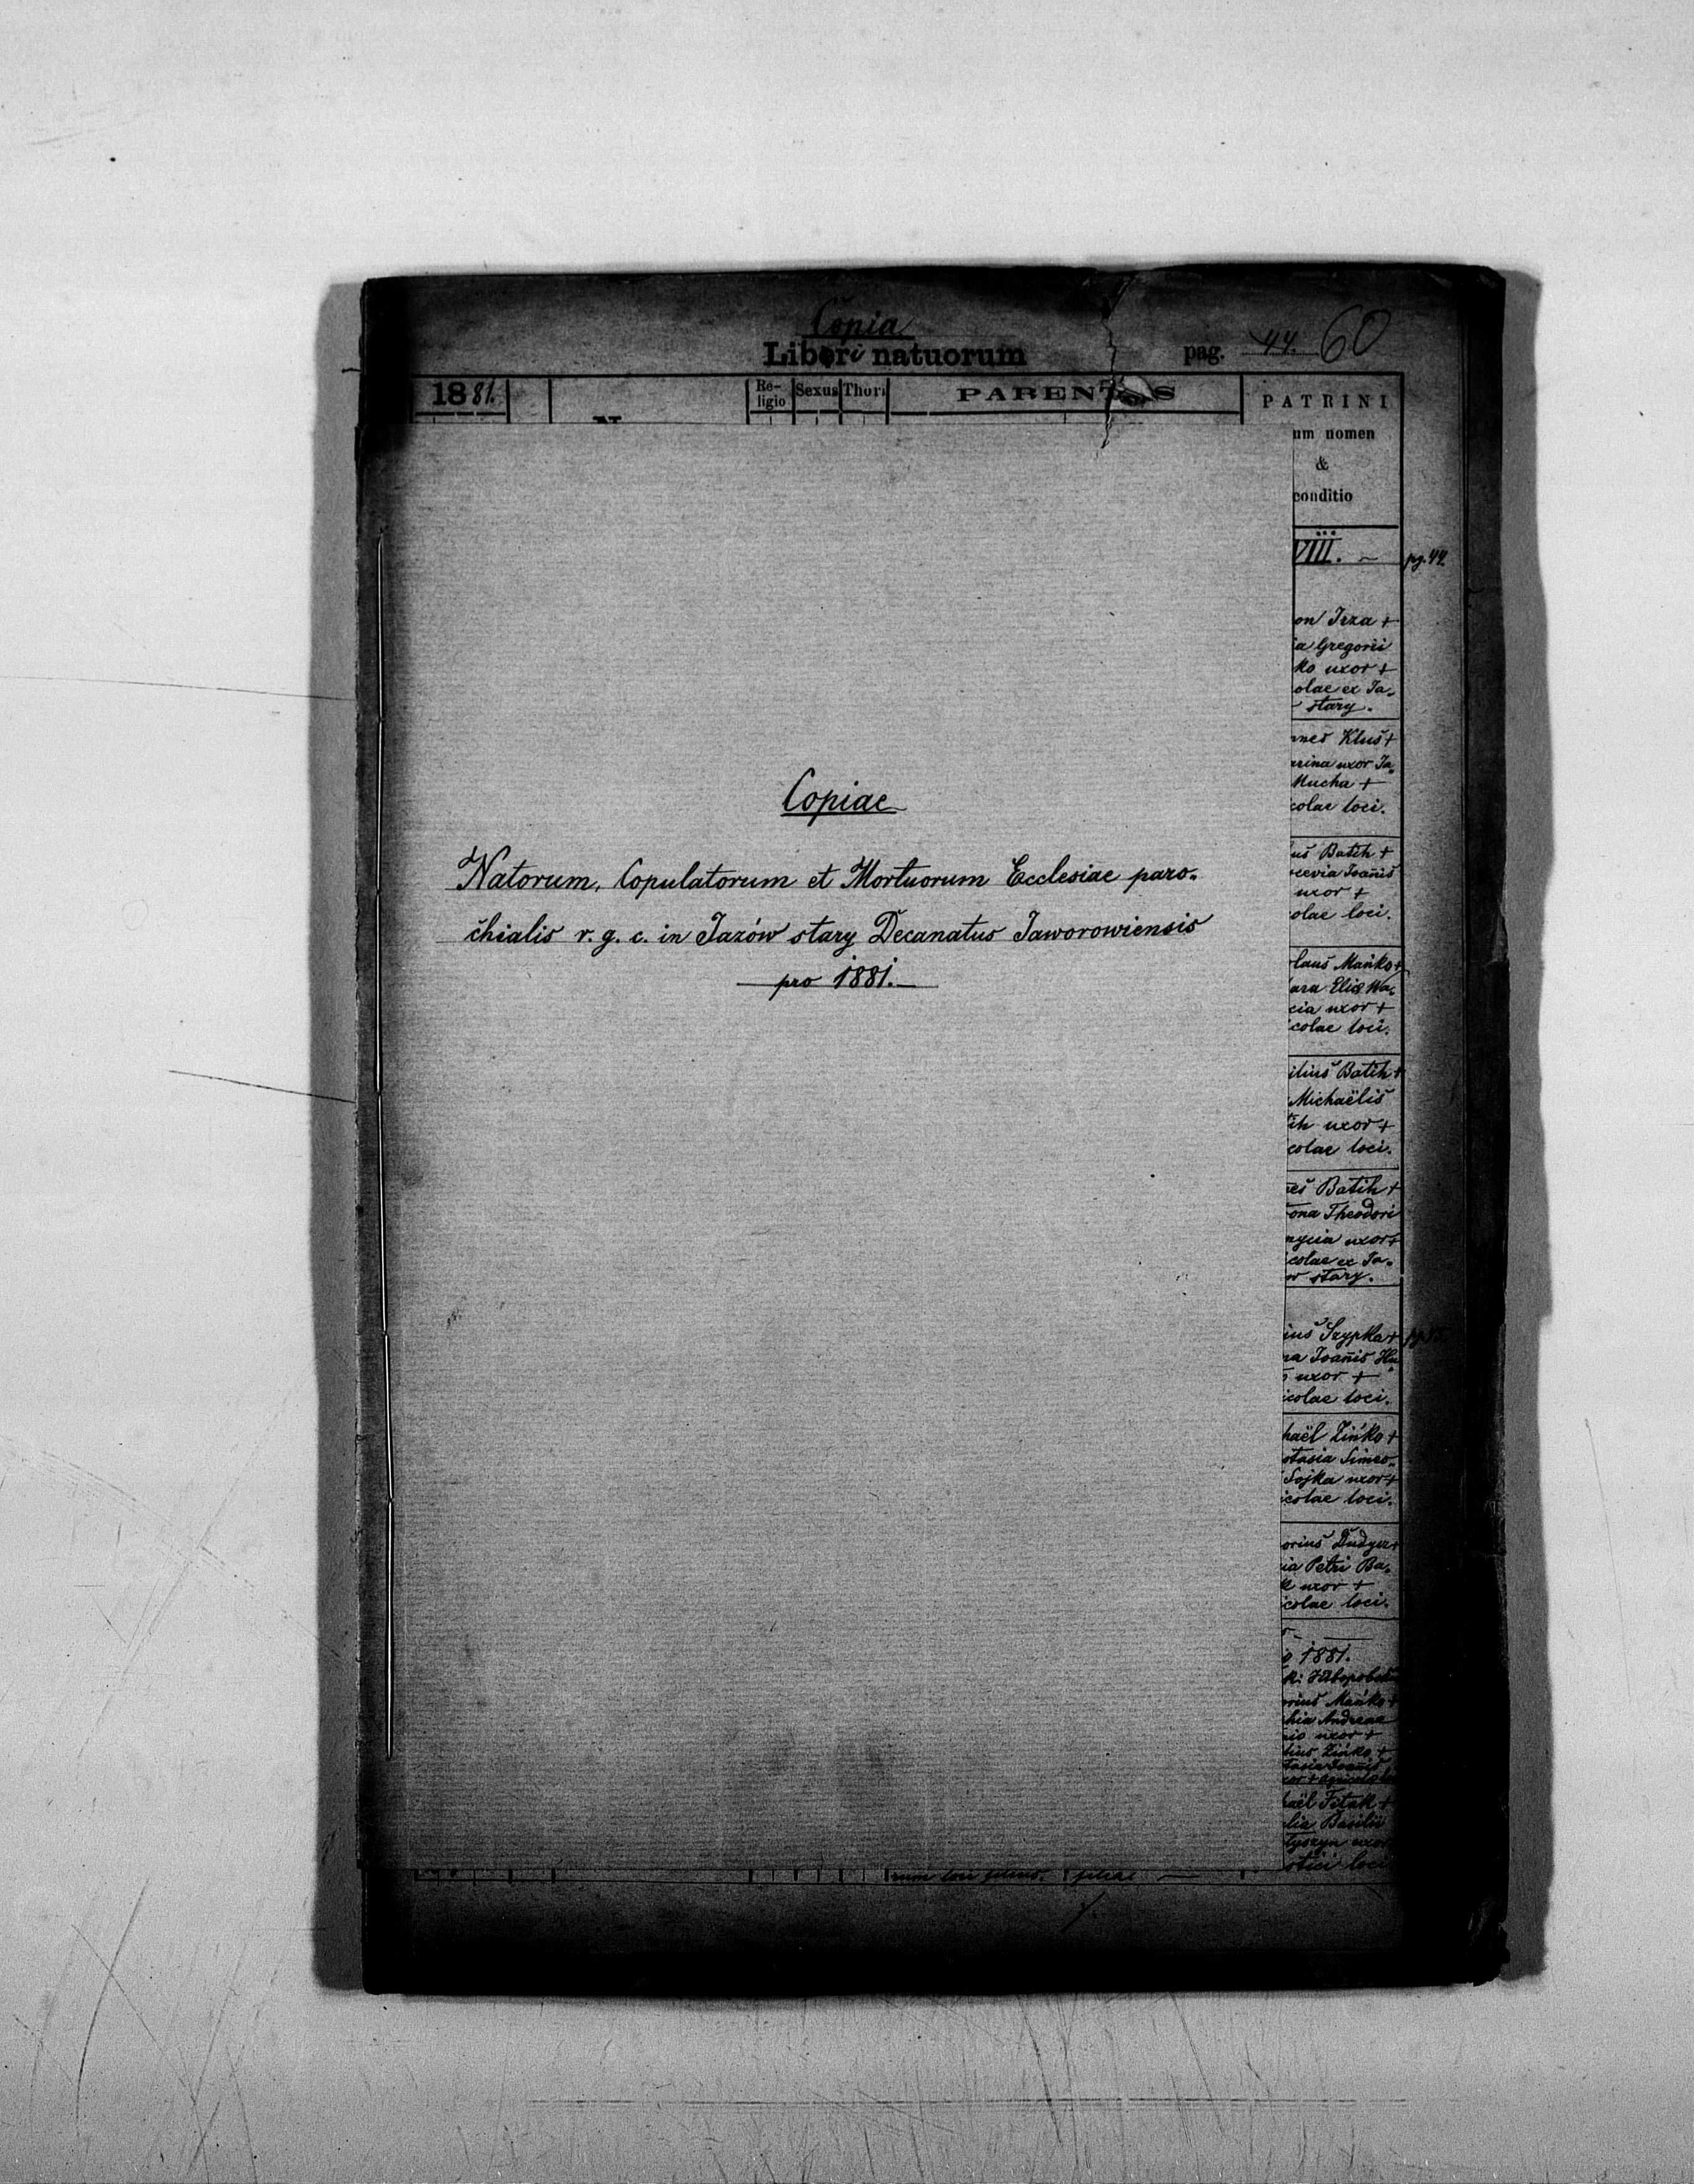 Copia
Liberi natuorum
pag. 44. 60
1881.
Religio Sexus Thori PARENTES PATRINI
um nomen
&
conditio
VIII. ~ pg. 44.
on Irza +
ia Gregorii
ko uxor +
olae ex Ja-
stary.
nnes Kluś +
arina uxor Ja-
Mucha +
colae loci.
us Batih +
Joannis
uxor +
olae loci.
laus Mańko +
ara Eliæ Wa-
cia uxor +
colae loci.
ilius Batih +
Michaëlis
tih uxor +
colae loci.
nes Batih +
ona Theodori
uxor +
colae ex Ja-
w stary.
ius Szypka +
na Joannis Hu-
uxor +
icolae loci.
haël Zińko +
stasia Simeo-
Sojka uxor +
icolae loci.
orius Dudycz +
ia Petri Ba-
k uxor +
colae loci.
1881.
orius Mańko +
hia Andreae
uxor +
Zińko +
Joannis
haël Fitak +
Basilii
uxor
loci
Copiae
Natorum, Copulatorum et Mortuorum Ecclesiae paro-
chialis r. g. c. in Jazów stary Decanatus Jaworowiensis
pro 1881.